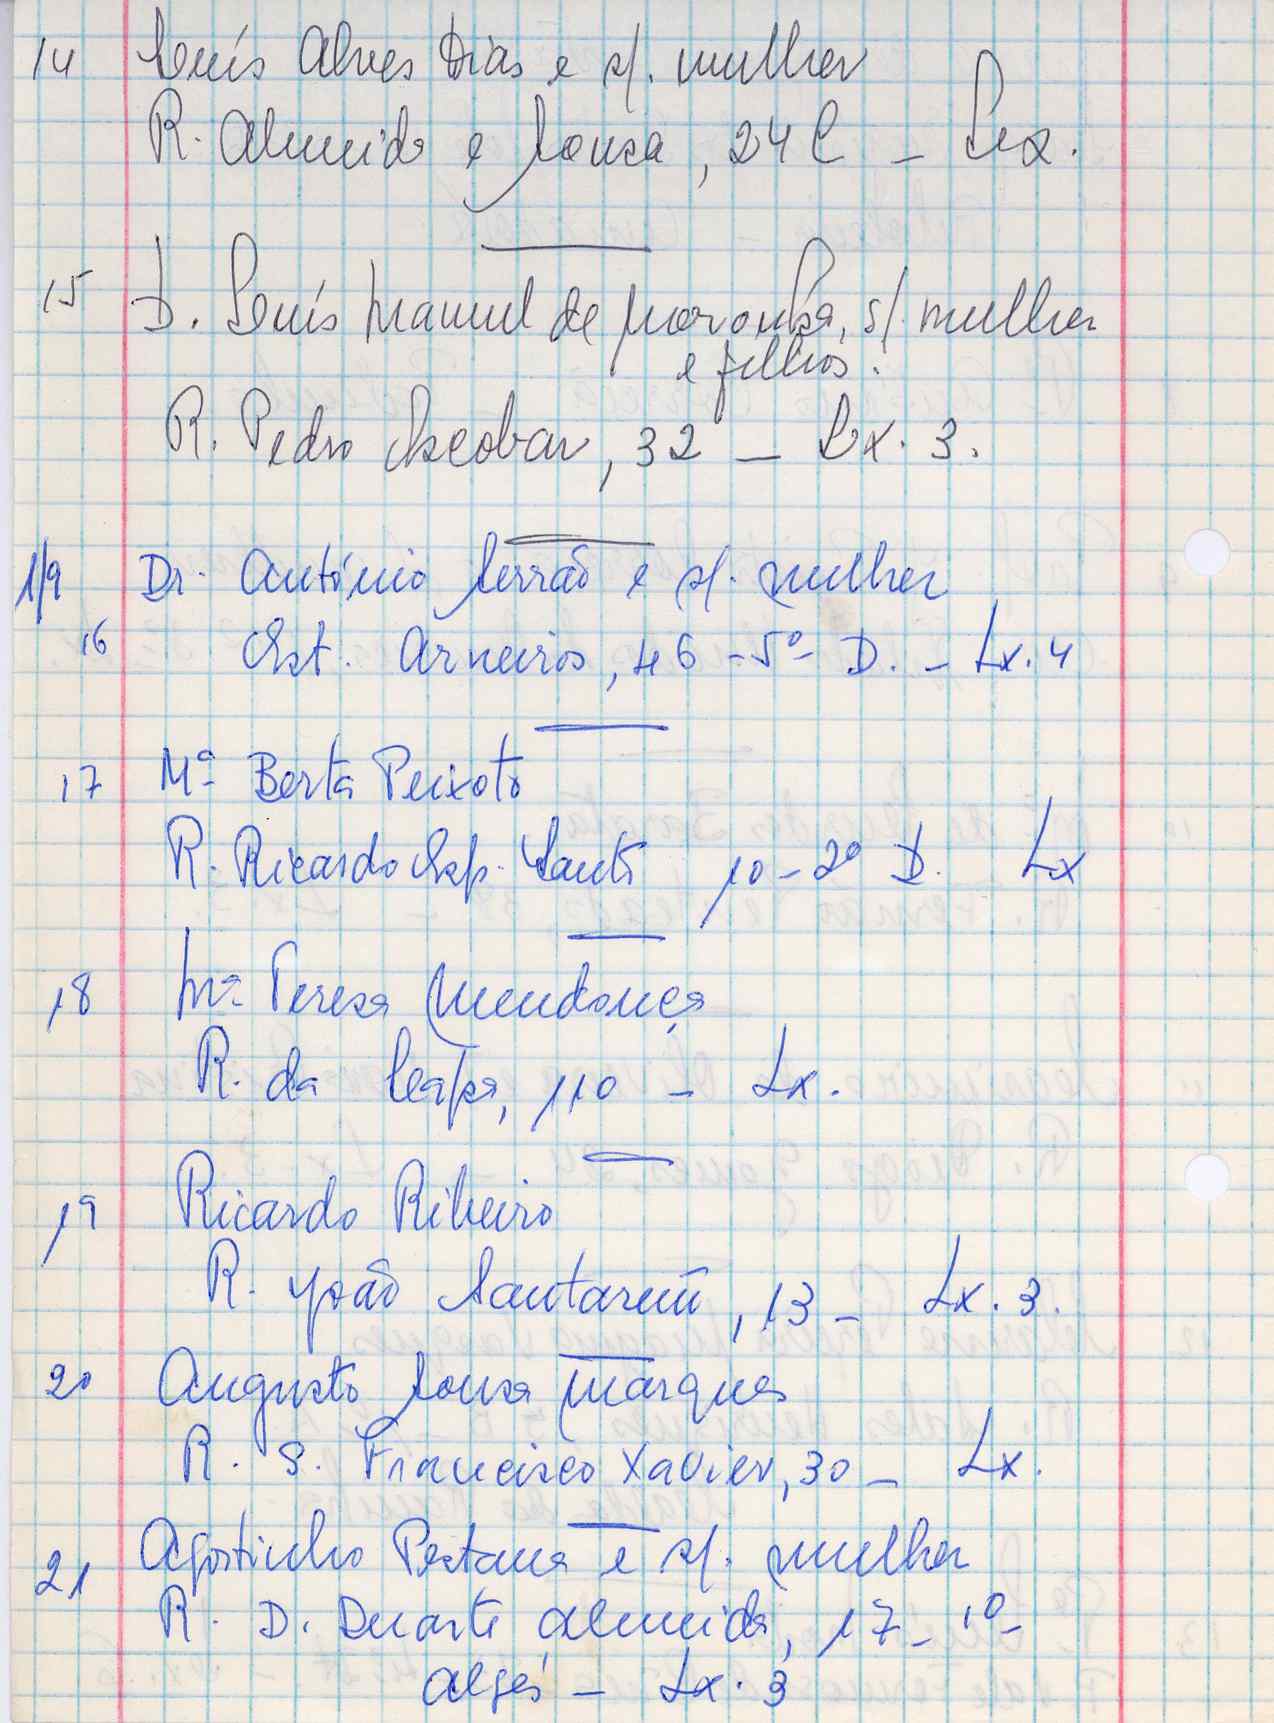 14 Luís Alves Dias e s/. mulher
R. Almeida e Sousa, 24 C – Lx.
15 D. Luís Manuel de Noronha, s/ mulher
e filhos.
R. Pedro Escobar, 32 – Lx. 3.
1/9 Dr. António Serrão e s/. mulher
16 Est. Arneiros, 46 – 5º D. – Lx. 4
17 Mª Berta Peixoto
R. Ricardo Esp. Santo 10 – 2º D. Lx
18 Mª Teresa Mendonça
R. da Lapa, 110 – Lx.
19 Ricardo Ribeiro
R. João Santarém, 13 – Lx. 3.
20 Augusto Sousa Marques
R. S. Francisco Xavier, 30 – Lx.
21 Agostinho Pestana e s/. mulher
R. D. Duarte Almeida, 17 – 1º –
Algés – Lx. 3